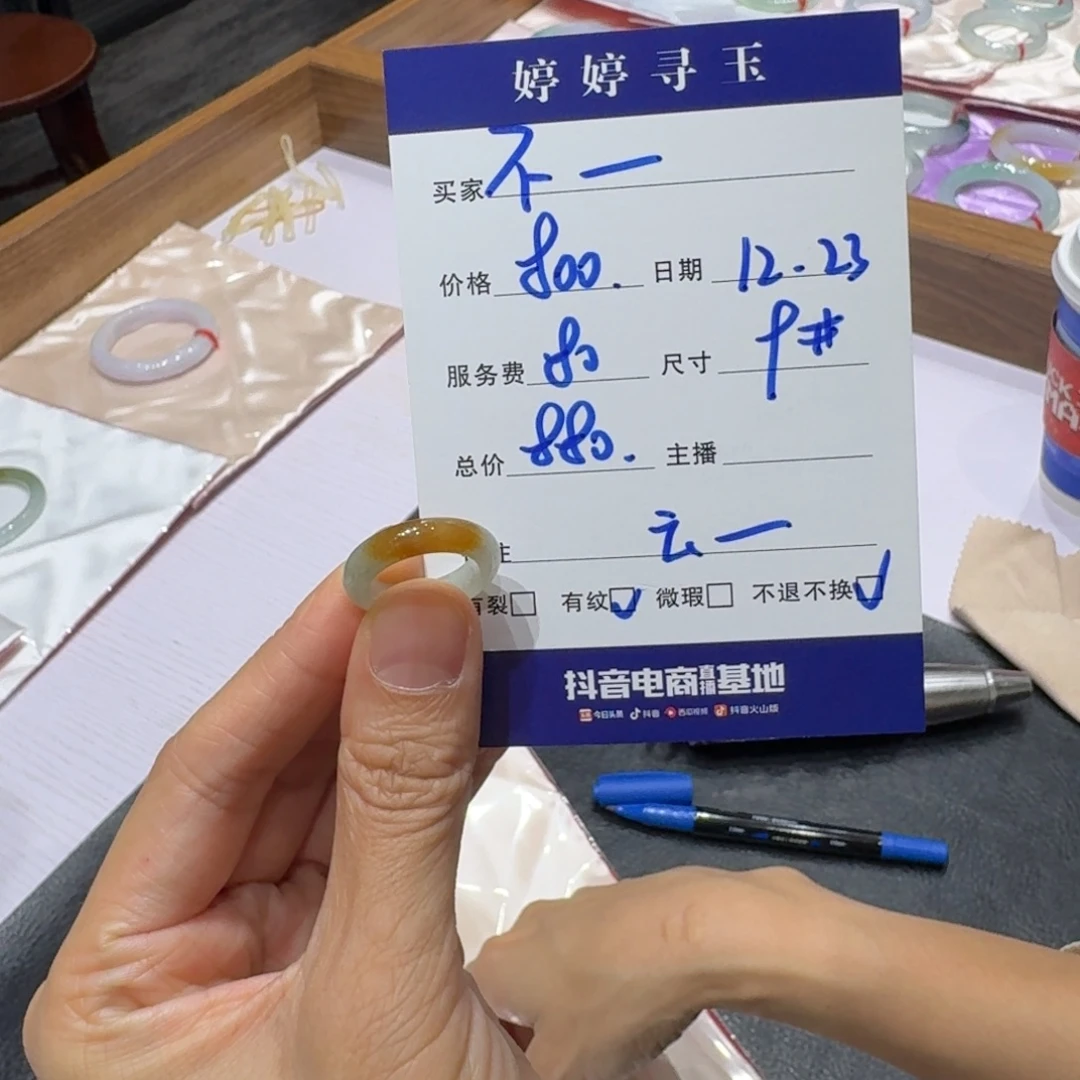 婷婷寻玉
买家 不一
价格 800. 日期 12.23
服务费 80 尺寸 9#
总价 880. 主播
注 云一
有裂□ 有纹☑ 微瑕□ 不退不换☑
抖音电商直播基地
今日头条 抖音 西瓜视频 抖音火山版